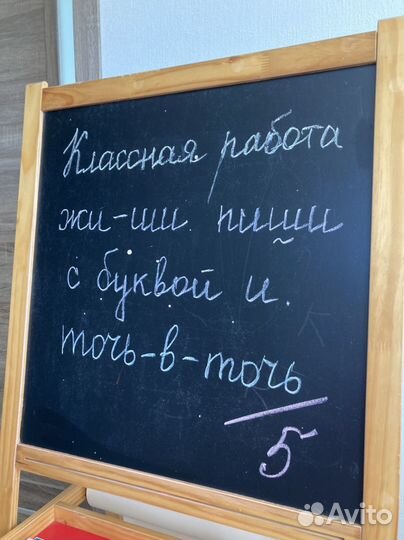 Классная работа
жи-ши пиши
с буквой и.
точь-в-точь
5
Avito